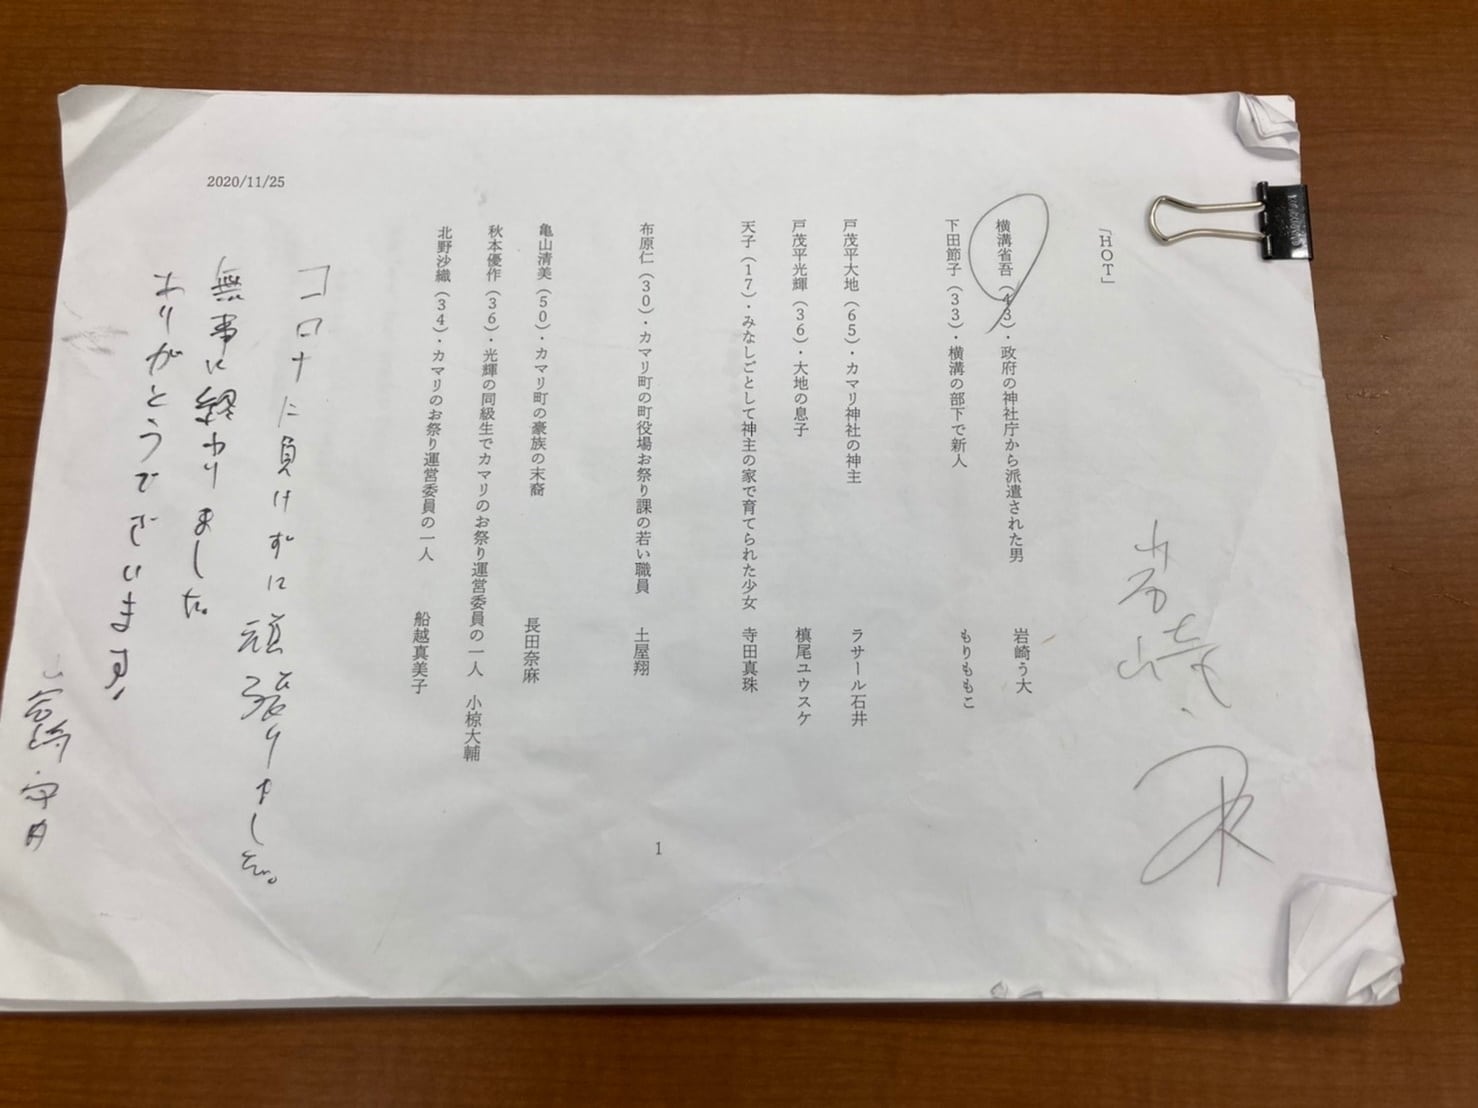 「HOT」
横溝省吾(43)・政府の神社庁から派遣された男 岩崎う大
下田節子(33)・横溝の部下で新人 もりももこ
戸茂平大地(65)・カマリ神社の神主 ラサール石井
戸茂平光輝(36)・大地の息子 槙尾ユウスケ
天子(17)・みなしごとして神主の家で育てられた少女 寺田真珠
布原仁(30)・カマリ町の町役場お祭り課の若い職員 土屋翔
亀山清美(50)・カマリ町の豪族の末裔 長田奈麻
秋本優作(36)・光輝の同級生でカマリのお祭り運営委員の一人 小椋大輔
北野沙織(34)・カマリのお祭り運営委員の一人 船越真美子
2020/11/25
コロナに負けずに頑張りました。
無事に終わりました。
ありがとうございます。
1